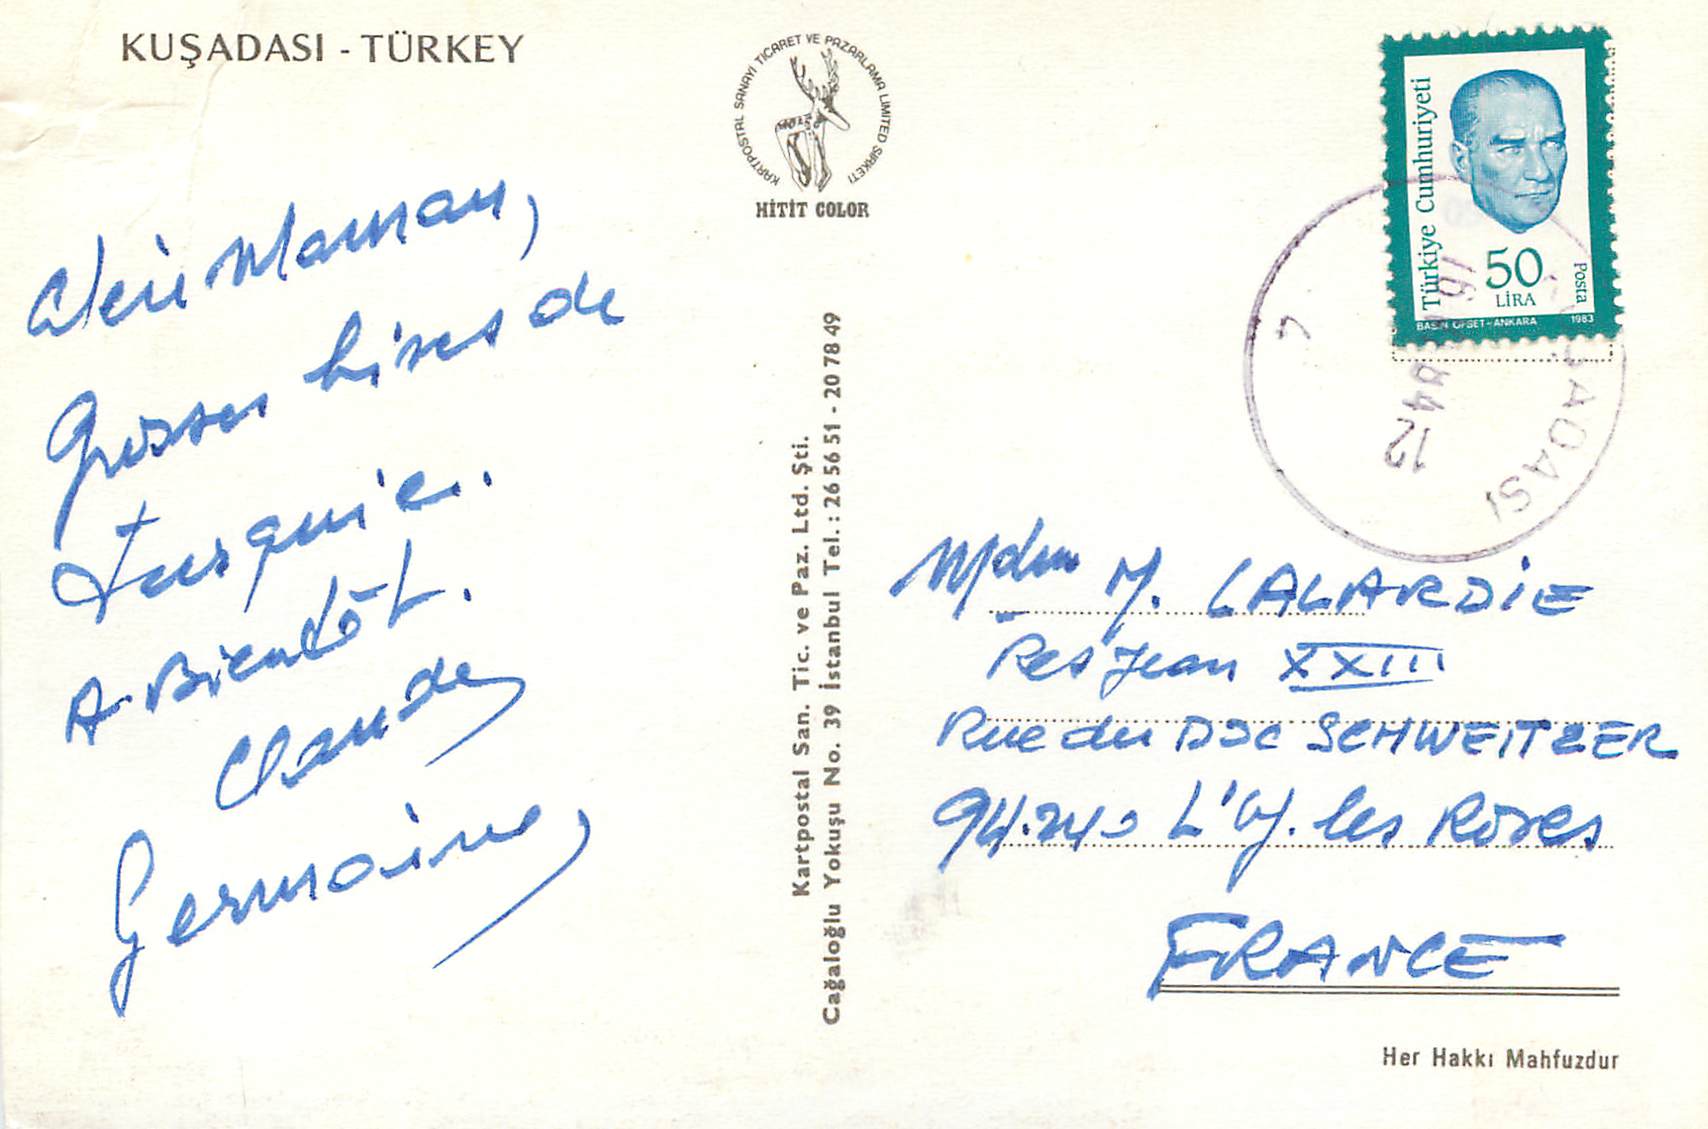 KUŞADASI - TÜRKEY
KARTPOSTAL SANAYİ TİCARET VE PAZARLAMA LIMITED ŞİRKETİ
HİTİT COLOR
Maman,
Grosses bises de
turquie.
A Bientôt.
Claude
Germaine,
Kartpostal San. Tic. ve Paz. Ltd. Şti.
Cağaloğlu Yokuşu No. 39 İstanbul Tel.: 26 56 51 - 20 78 49
Türkiye Cumhuriyeti
50
LİRA
Posta
BASIN OFSET-ANKARA 1983
12
M. LALARDIE
Res Jean XXIII
Rue du Doc SCHWEITZER
94.240 L'Hy. les Roses
FRANCE
Her Hakkı Mahfuzdur